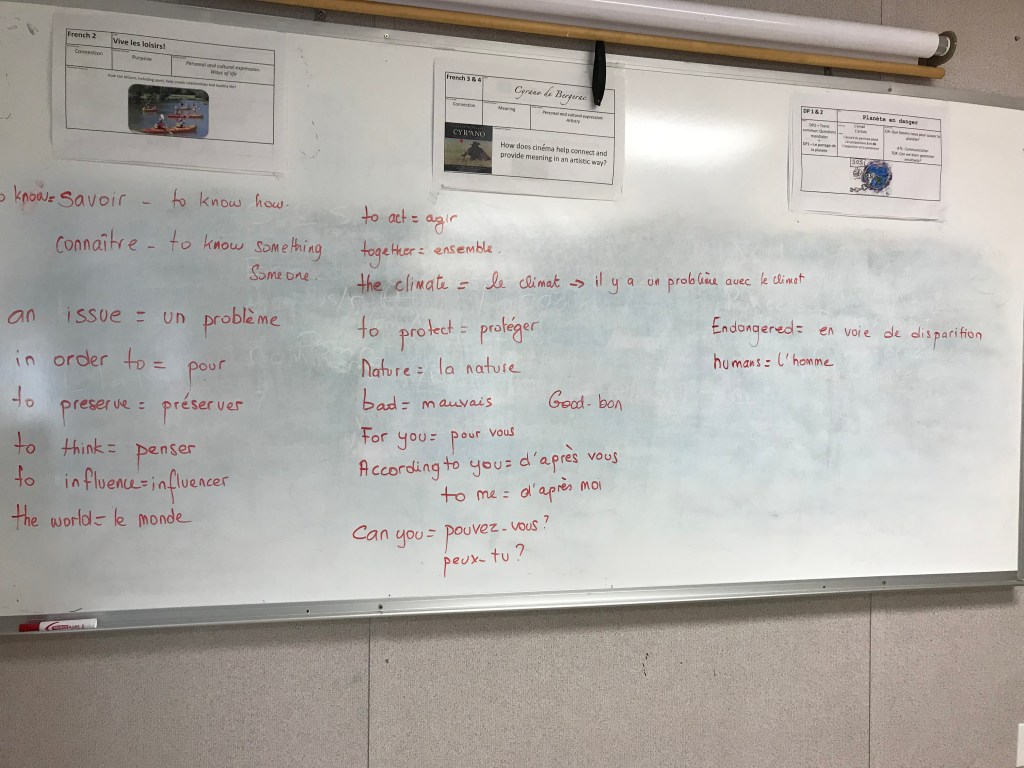 French 2
Vive les loisirs!
Connection
Purpose
Personal and cultural expression
Ways of life
French 3 & 4
Cyrano de Bergerac
Connection
Meaning
Personal and cultural expression
Artistry
CYRANO
How does cinéma help connect and
provide meaning in an artistic way?
DP 1 & 2
Planète en danger
know = savoir - to know how.
connaître - to know something
someone.
an issue = un problème
in order to = pour
to preserve = préserver
to think = penser
to influence = influencer
the world = le monde
to act = agir
together = ensemble.
the climate = le climat → il y a un problème avec le climat
to protect = protéger
Nature = la nature
bad = mauvais Good - bon
For you = pour vous
According to you = d'après vous
to me = d'après moi
Can you = pouvez-vous?
peux-tu?
Endangered = en voie de disparition
humans = l'homme